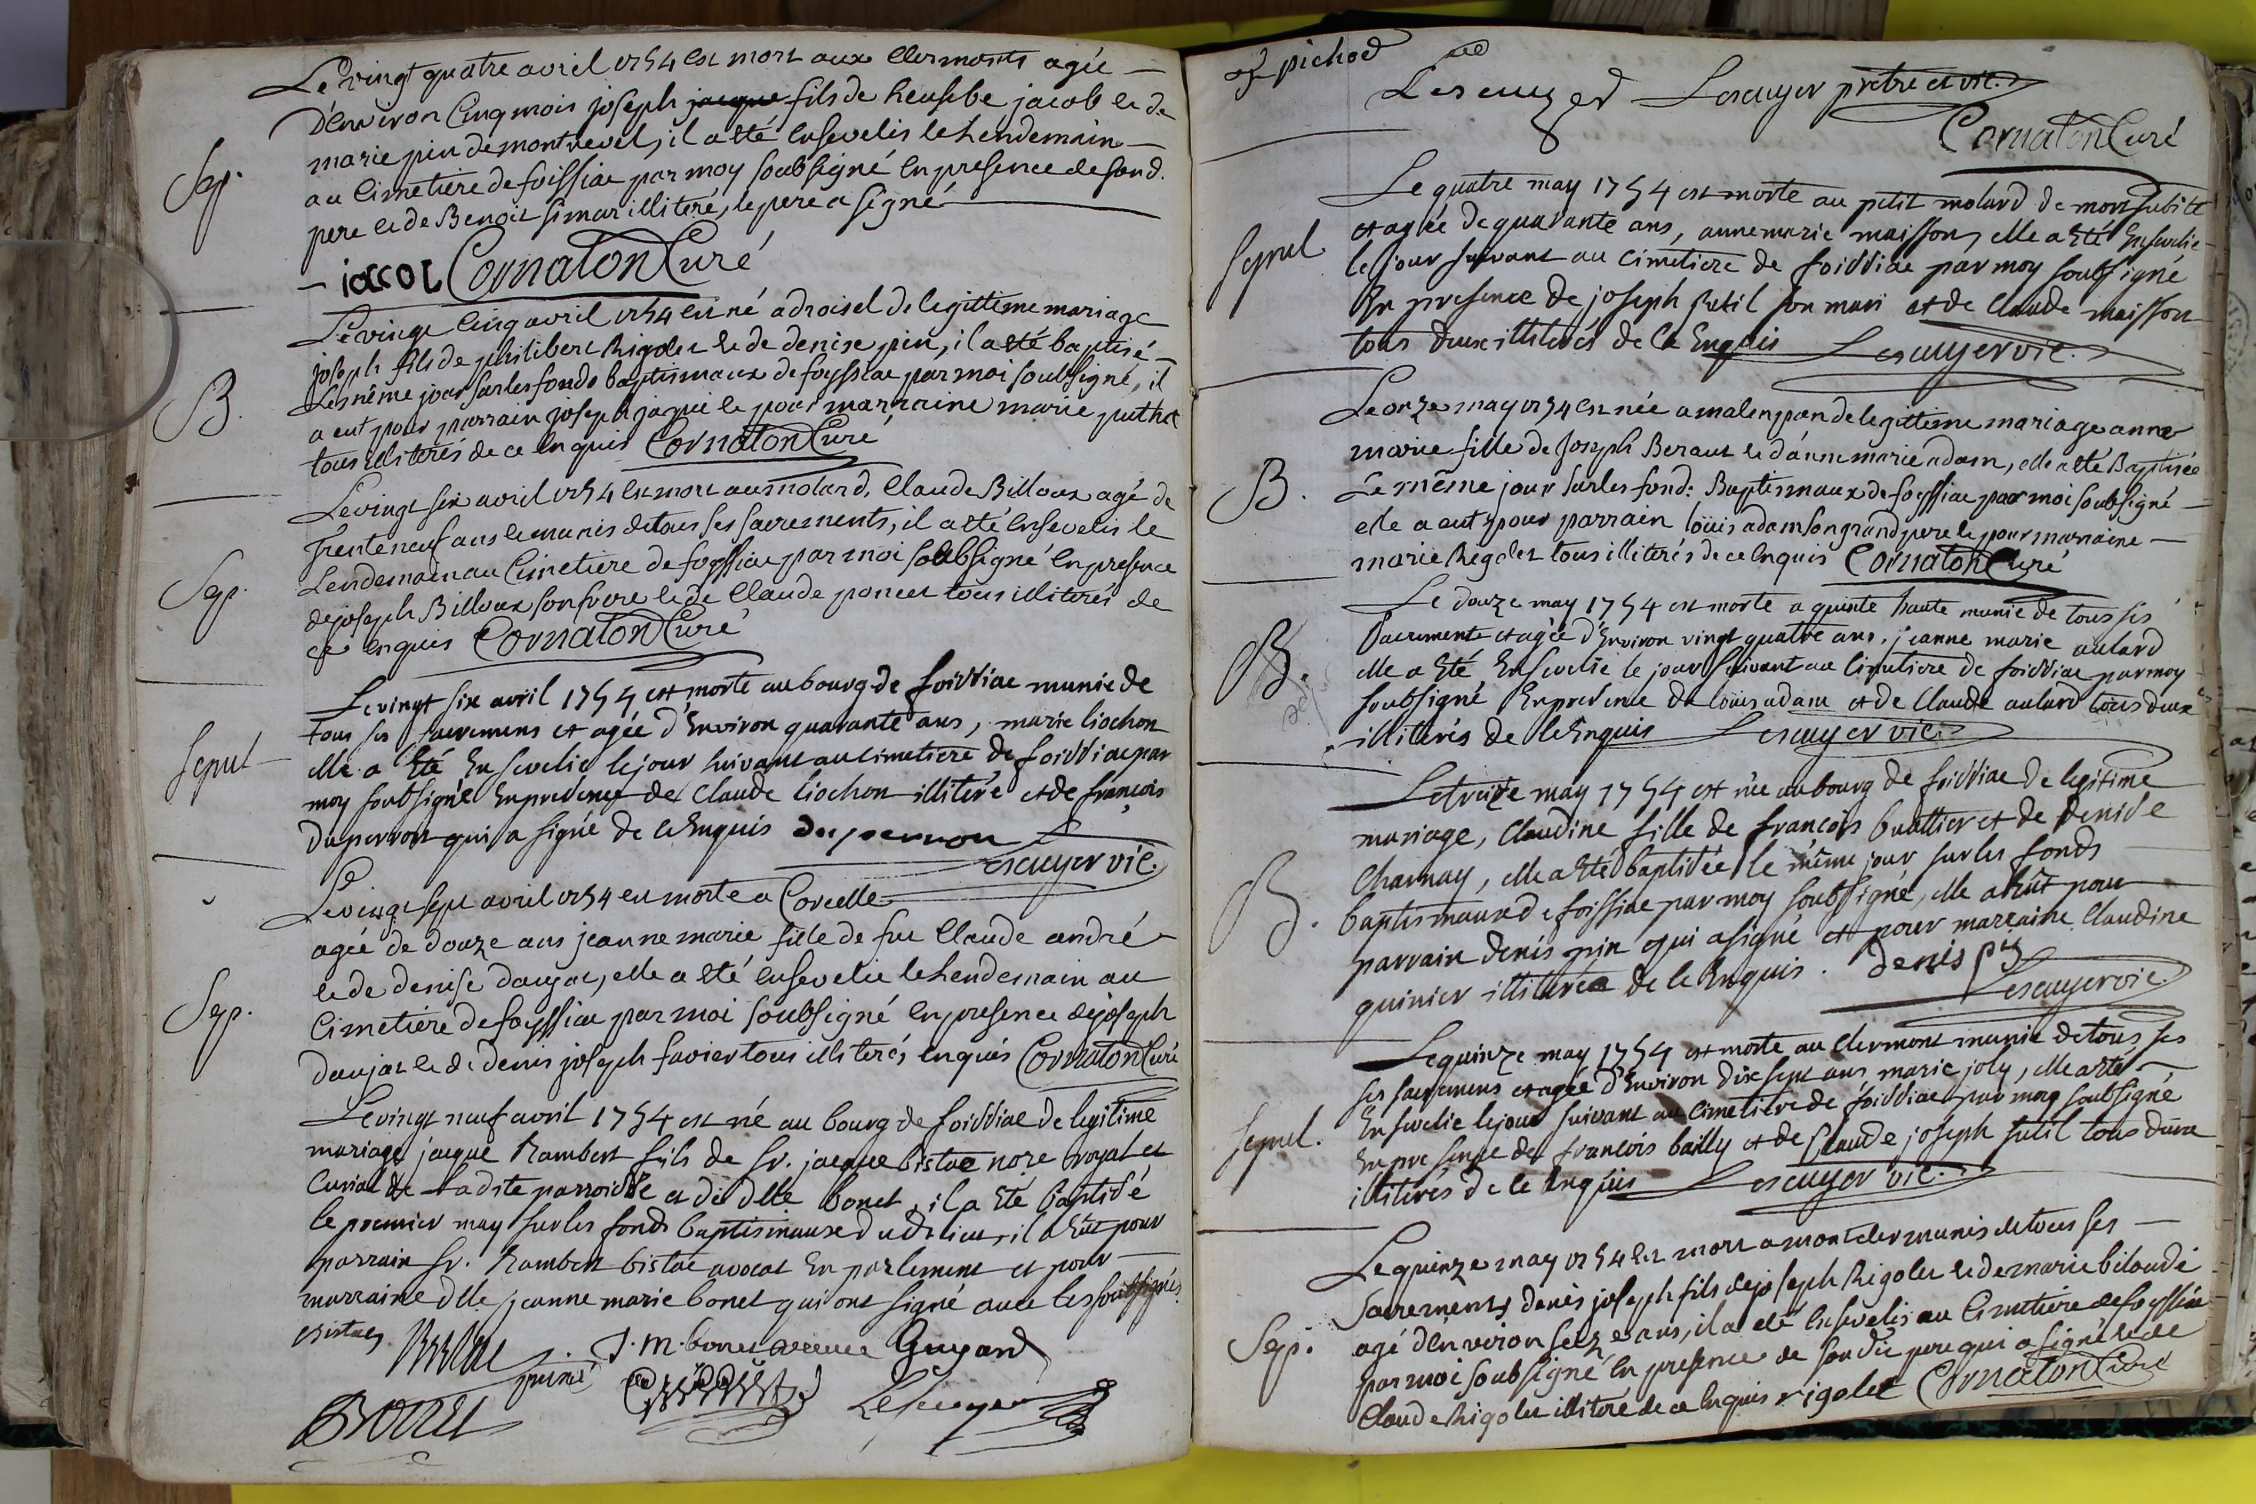 Le vingt quatre avril 1754 est mort aux Clermonts agée
D'environ Cinq mois joseph jacque fils de heusebe jacob et de
marie pin de montrevel, il a eté Ensevelis le hendemain
Sep.
au Cimetiere de foissiac par moy soubsigné En presence de son d.
pere et de Benoit simar illiteré, le pere a signé
jacob Cornaton Curé
Le vingt Cinq avril 1754 est né a droisel de legittime mariage
joseph fils de philibert Rigolet et de denise pin, il a eté baptisé
Le même jour sur les fonds baptismaux de foyssiac par moi soubsigné, il
B.
a eut pour parrain joseph jaque et pour marraine marie puthet
tous illiterés de ce Enquis Cornaton Curé
Le vingt six avril 1754 est mort au molard, Claude Billoux agé de
Trente neuf ans et munis de tous ses sacrements, il a eté Ensevelis le
Lendemain au Cimetiere de foyssiac par moi soubsigné En presence
Sep.
de joseph Billoux son frere et de Claude poncet tous illiterés de
ce Enquis Cornaton Curé
Le vingt six avril 1754 est morte au bourg de foissiac munie de
tous ses sacremens et agée d'Environ quarante ans, marie liochon
Sepul
elle a Eté Ensevelie le jour suivant au cimetiere de foissiac par
moy soubsigné En presence de Claude liochon illiteré et de françois
Duperron qui a signé de ce Enquis duperron
Lescuyer vic.
Le vingt sept avril 1754 est morte a Corcelle
agée de douze ans jeanne marie fille de fue Claude andré
et de denise daujat, elle a eté Ensevelie le hendemain au
Sep.
Cimetiere de foyssiac par moi soubsigné En presence de joseph
daujat et de denis joseph favier tous illiterés Enquis Cornaton Curé
Le vingt neuf avril 1754 est né au bourg de foissiac de legitime
mariage jacque Rambert fils de Sr. jacque bistac nore royal et
Curial de ladite parroisse et de dlle bonet, il a Eté baptisé
le premier may sur les fonds baptismaux dudt lieu, il a Eut pour
parrain Sr. Rambert bistac avocat En parlement et pour
marraine dlle jeanne marie bonet qui ont signé avec les soubsignés
Bistac J. m. bonet Guyard
Bonet Lescuyer
pichod
Lescuyer Lescuyer prêtre et vic.
Cornaton Curé
Le quatre may 1754 est morte au petit molard de mort subite
et agée de quarante ans, anne marie maisson, elle a Eté Ensevelie
Sepul
le jour suivant au Cimetiere de foissiac par moy soubsigné
En presence de joseph Putil son mari et de Claude maisson
tous deux illiterés de ce Enquis Lescuyer vic.
Le onze may 1754 est née a malenpan de legittime mariage anne
marie fille de Joseph Beraut et d'anne marie adam, elle a eté Baptisée
B.
Le même jour sur les fond: Baptismaux de foyssiac par moi soubsigné
elle a eut pour parrain loüis adam son grand pere et pour marraine
marie Regolet tous illiterés de ce Enquis Cornaton Curé
Le douze may 1754 est morte a quinte haute munie de tous ses
Sacrements et agée d'Environ vingt quatre ans, jeanne marie aulard
B.
elle a Eté Ensevelie le jour suivant au Cimetiere de foissiac par moy
soubsigné En presence de loüis adam et de Claude aulard tous deux
illiterés de ce Enquis Lescuyer vic.
Le treize may 1754 est née au bourg de foissiac de legitime
mariage, Claudine fille de françois buattier et de denise
Charnay, elle a Eté baptisée le même jour sur les fonds
B.
baptismaux de foissiac par moy soubsigné, elle a Eüt pour
parrain denis pin qui a signé et pour marraine Claudine
quinier illiterée de ce Enquis. denis pin
Lescuyer vic.
Le quinze may 1754 est morte au Clermont munie de tous ses
ses sacremens et agée d'Environ dix sept ans marie joly, elle a eté
Sepul.
Ensevelie le jour suivant au Cimetiere de foissiac par moy soubsigné
En presence de françois bailly et de Claude joseph putil tous deux
illiterés de ce Enquis Lescuyer vic.
Le quinze may 1754 est mort a montcler munis de tous ses
Sacrements denis joseph fils de joseph Rigolet et de marie biloude
Sep.
agé d'environ seize ans, il a eté Ensevelis au Cimetiere de foyssiac
par moi soubsigné En presence de son dit pere qui a signé et de
Claude Rigolet illiteré de ce Enquis rigolet Cornaton Curé